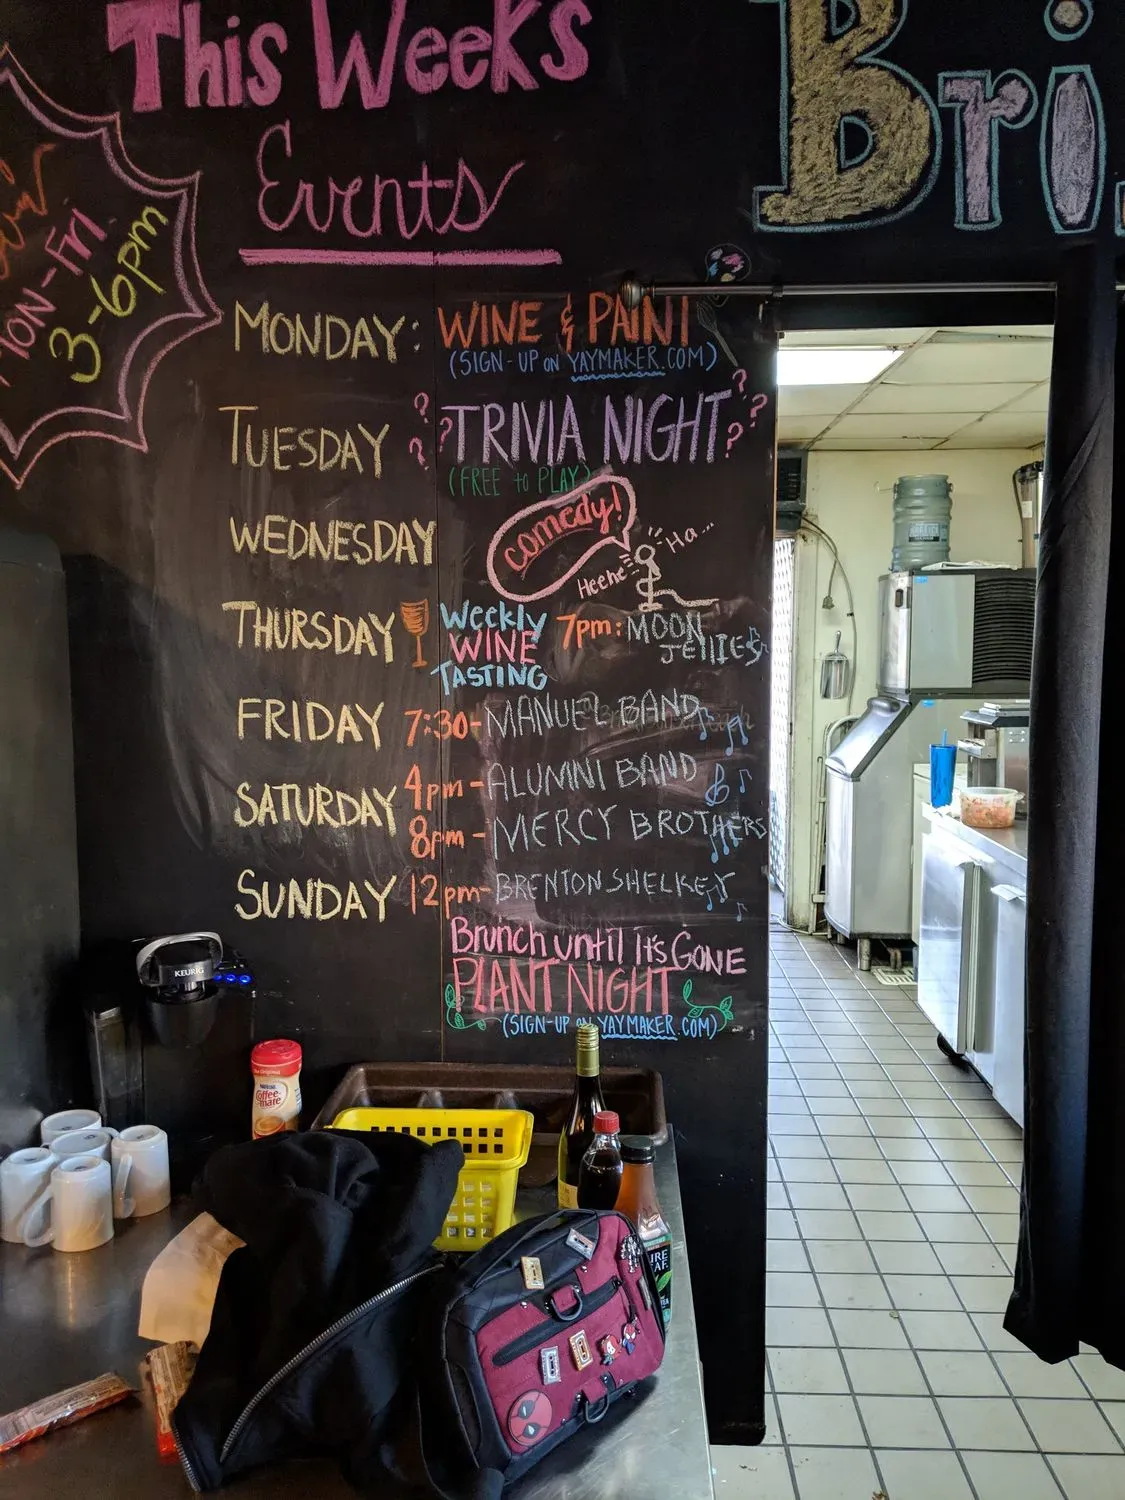 This Weeks
Events
Bri
MON-FRI
3-6pm
MONDAY: WINE & PAINT
(SIGN-UP ON YAYMAKER.COM)
TUESDAY ? ? ? TRIVIA NIGHT ? ? ?
(FREE to PLAY)
WEDNESDAY comedy!
Ha...
Heehe
THURSDAY Weekly WINE TASTING 7pm: MOON JELLIES
FRIDAY 7:30- MANUEL BAND
SATURDAY 4pm - ALUMNI BAND
8pm - MERCY BROTHERS
SUNDAY 12pm- BRENTON SHELKEY
Brunch until It's GONE
PLANT NIGHT
(SIGN-UP ON YAYMAKER.COM)
KEURIG
The Original
Nestle
Coffee-mate
PURE
LEAF